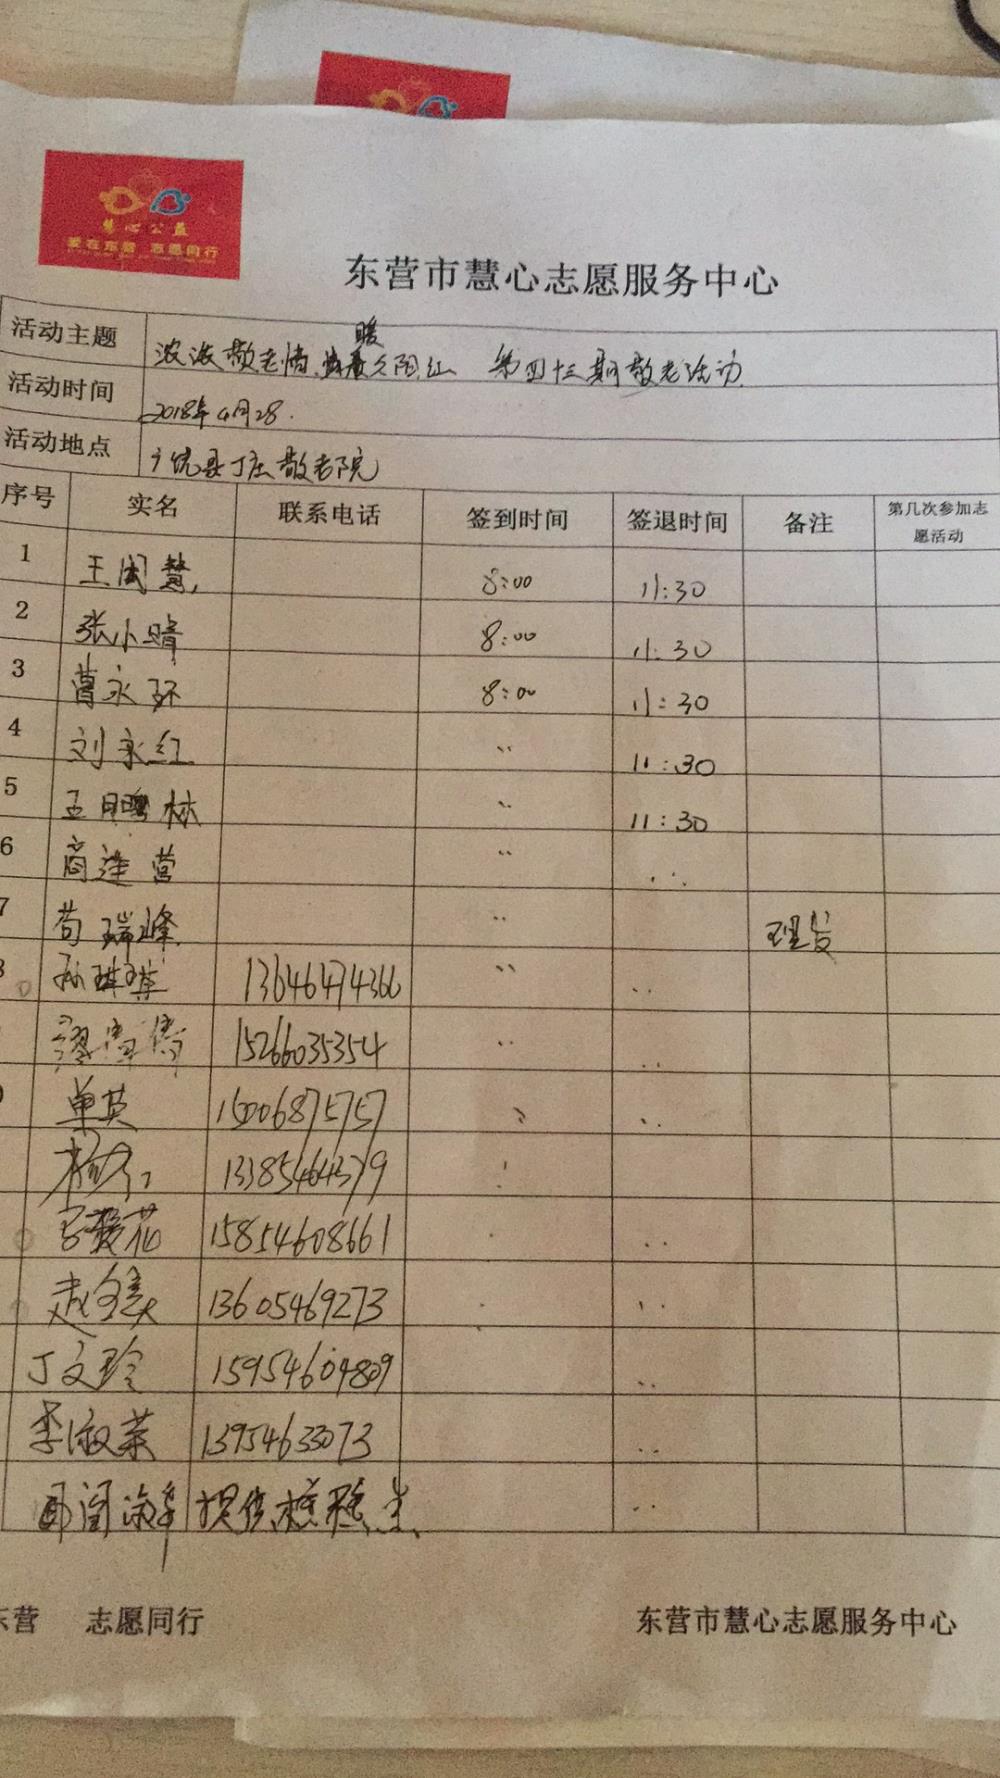 慧心公益
爱在东营 志愿同行
东营市慧心志愿服务中心
活动主题 浓浓敬老情 暖夕阳红 第四十三期敬老活动
活动时间 2018年4月28.
活动地点 广饶县丁庄敬老院
序号 实名 联系电话 签到时间 签退时间 备注 第几次参加志愿活动
1 王闰慧 8:00 11:30
2 张小晴 8:00 11:30
3 曹永环 8:00 11:30
4 刘永红 〃 11:30
5 王鹏林 〃 11:30
6 商连营 〃 〃
7 苟瑞峰 〃 理发
孙琳琳 13646474366 〃 〃
15266035354 〃 〃
单英 15006875757 〃 〃
13385464379
宫爱花 15854608661 〃
赵全美 13605469273 〃
丁文玲 15954604809 〃
李淑荣 13954633073 〃
提供 〃
东营 志愿同行 东营市慧心志愿服务中心